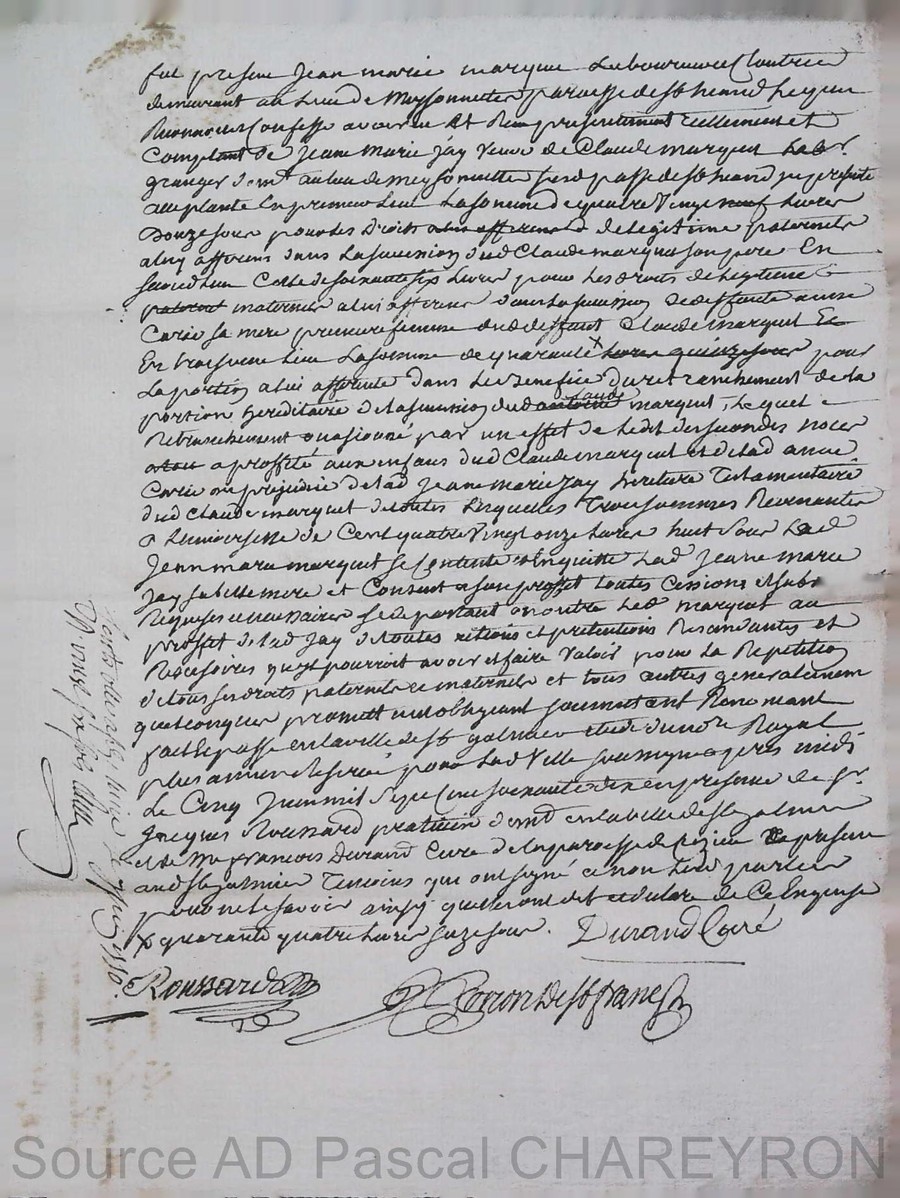 fut present Jean marie marque Laboureur
demeurant au Lieu de Meyssonnettes paroisse de st heand Lequel
confesse avoir eu et Reçu presentement reellement et
Comptant de Jeanne Marie Jay Veuve de Claude marquet
granger demt au lieu de meyssonnette susd psse de st heand
acceptante En premier Lieu La somme de quatre Vingt neuf Livres
Douze sous pour les Droits de legitime paternels
a luy afferens dans La succession dud Claude marquet son pere En
second Lieu Celle de soixante six Livres pour Les droits de legitime
paternel maternels a lui afferens dans La succession de deffunte anne
Carie sa mere premiere femme dud deffunt Claude marquet Et
En troisieme Lieu La somme de quarante x Livres quinze sous pour
La portion a lui afferente dans Le Benefice du retranchement de la
portion hereditaire de la succession dud antoine Claude marquet, Lequel
Retranchement occasionné par un effet de Ledit des secondes noces
a proffité aux enfans dud Claude marquet et de lad anne
Carie au prejudice de lad Jeanne Marie Jay heritiere Testamentaire
dud Claude marquet de toutes Lesquelles Trois sommes Revenantes
a Luniverselle de Cent quatre Vingt onze Livres huit Sous Led
Jean marie marquet se Contente et en quitte Lad Jeanne marie
Jay sa belle mere et Consent a son proffit toutes Cessions et subr
Requises et necessaires se departant en outre Led marquet au
proffit de lad Jay de toutes actions et pretentions Rescindantes et
Rescisoires quil pourroit avoir et faire Valoir pour La Repetition
de tous ses droits paternels et maternels et tous autres generalement
quelconques promett. obligeant soumettant Renoncant
fait et passé en la ville de st galmier etude du nore Royal
plus ancien Reservé pour Lad Ville soussigné apres midi
Le Cinq Juin mil Sept Cent soixante dix en presence de Sr
Jacques Roussard praticien demt en la ville de st galmier
et de Mre francois Durand Curé de la paroisse de present
aud st galmier Temoins qui ont signé et non Lesd parties
pour ne le savoir ainsy quelles ont dit et declaré de Ce Enquises
x quarante quatre Livres seize sous. Durand Curé
Roussard